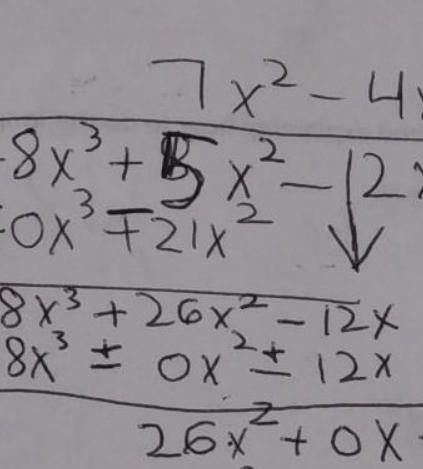 7x² - 4
-8x³ + 5x² - 12x
0x³ ∓ 21x²
8x³ + 26x² - 12x
8x³ ± 0x² ± 12x
26x² + 0x